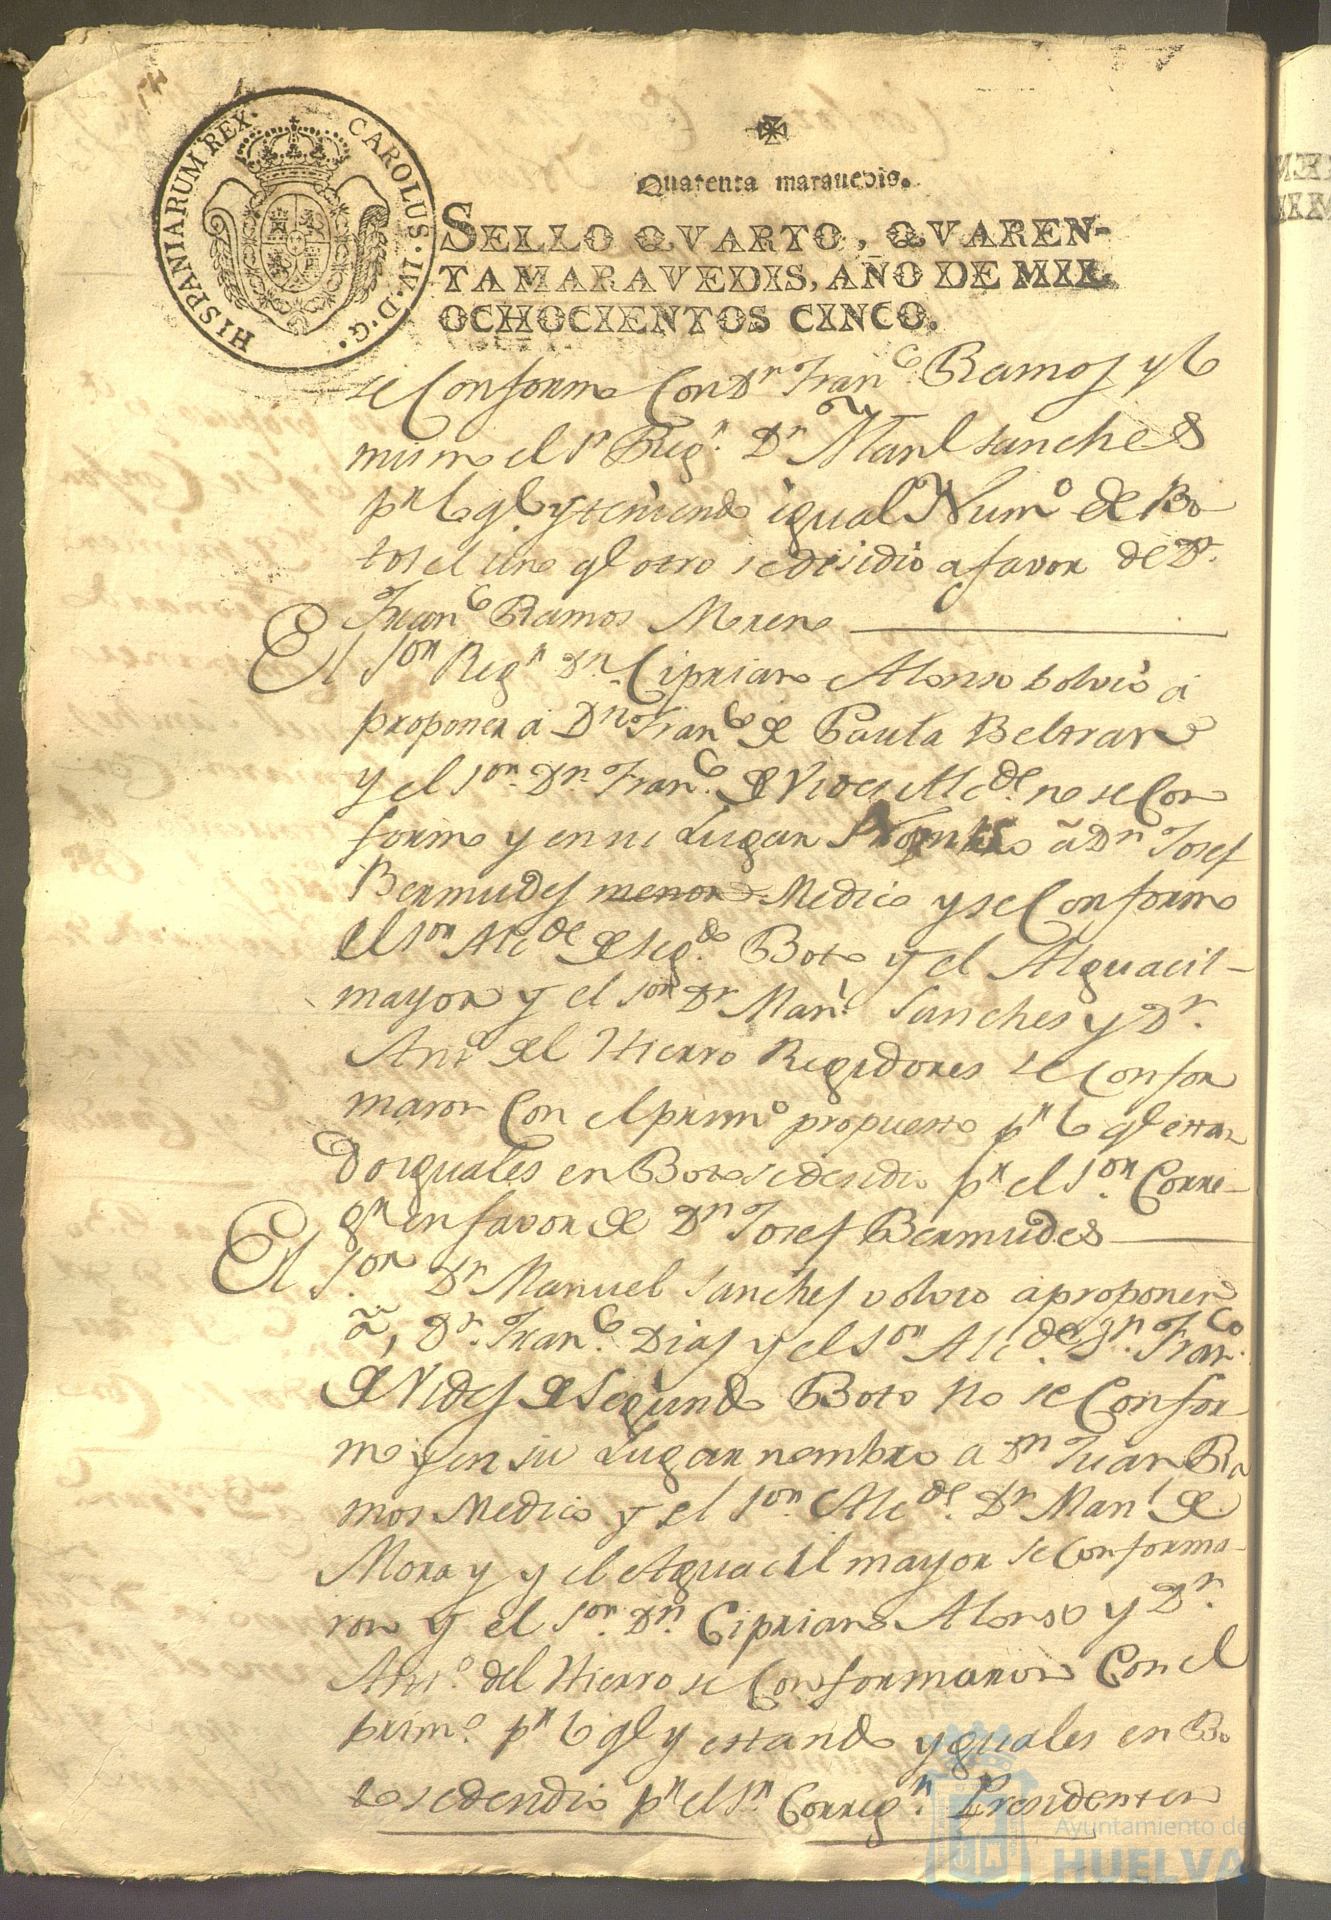 HISPANIARUM REX. CAROLUS. IV. D. G.
Quarenta marauedis.
SELLO QVARTO, QVAREN-
TAMARAVEDIS, AÑO DE MIL
OCHOCIENTOS CINCO.
se Conformo Con Dn Franco Ramos y lo
mismo el Sr Regr. Dn Manl Sanches
pr lo ql. y teniendo igual Numo de Bo
tos el uno ql otro se desidio a favor de Dn.
Franco Ramos Moreno
El Sor Regr Dn. Cipriano Alonso bolvio á
proponer á Dn Franco de Paula Beltran
y el Sor. Dn. Franco. de Vides Alcde. no se Con
formo y en su Lugar Nombro á Dn Josef
Bermudes menor Medico y se Conformo
el Sor Alcde de segdo. Boto y el Alguacil
mayor y el Sor Dn Manl. Sanches y Dn.
Anto del Hierro Regidores se Confor
maron Con el primo propuesto pr lo ql estan
do iguales en Botos se desidio pr el Sor. Corre-
gr en favor de Dn Josef Bermudes
El Sor. Dn Manuel Sanches volvio a proponer
á, Dn. Franco. Dias y el Sor Alcde. Dn. Franco.
de Vides de Segundo Boto No se Confor
mo y en su Lugar nombro a Dn Juan Ra
mos Medico y el Sor. Alcde. Dn Manl de
Mora y y el Alguacil mayor se Conforma-
ron y el Sor. Dn. Cipriano Alonso y Dn.
Anto. del Hierro se Conformaron Con el
primo. pr lo ql y estando yguales en Bo
tos se desidio pr el Sr. Corregr. Presidente
Ayuntamiento de
HUELVA